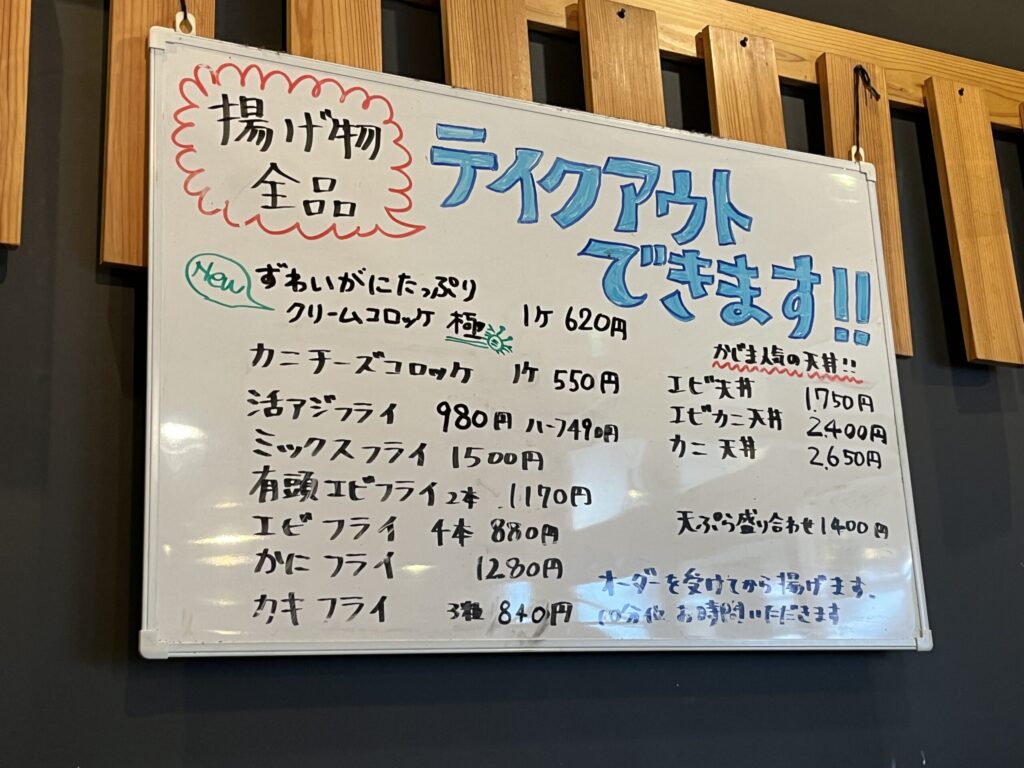 揚げ物
全品
テイクアウト
できます!!
New ずわいがにたっぷり
クリームコロッケ 極 1ケ 620円
カニチーズコロッケ 1ケ 550円
活アジフライ 980円 ハーフ490円
ミックスフライ 1500円
有頭エビフライ 2本 1170円
エビフライ 4本 880円
かにフライ 1280円
カキフライ 3種 840円
かじま人気の天丼!!
エビ天丼 1.750円
エビカニ天丼 2.400円
カニ天丼 2.650円
天ぷら盛り合わせ 1400円
オーダーを受けてから揚げます、
10分位お時間いただきます